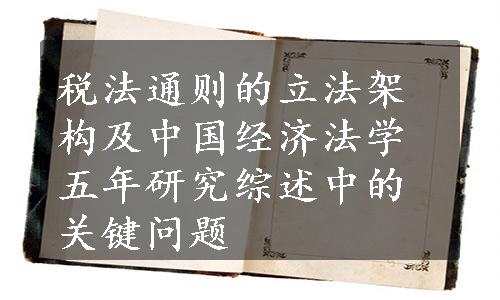 税法通则的立法架
构及中国经济法学
五年研究综述中的
关键问题